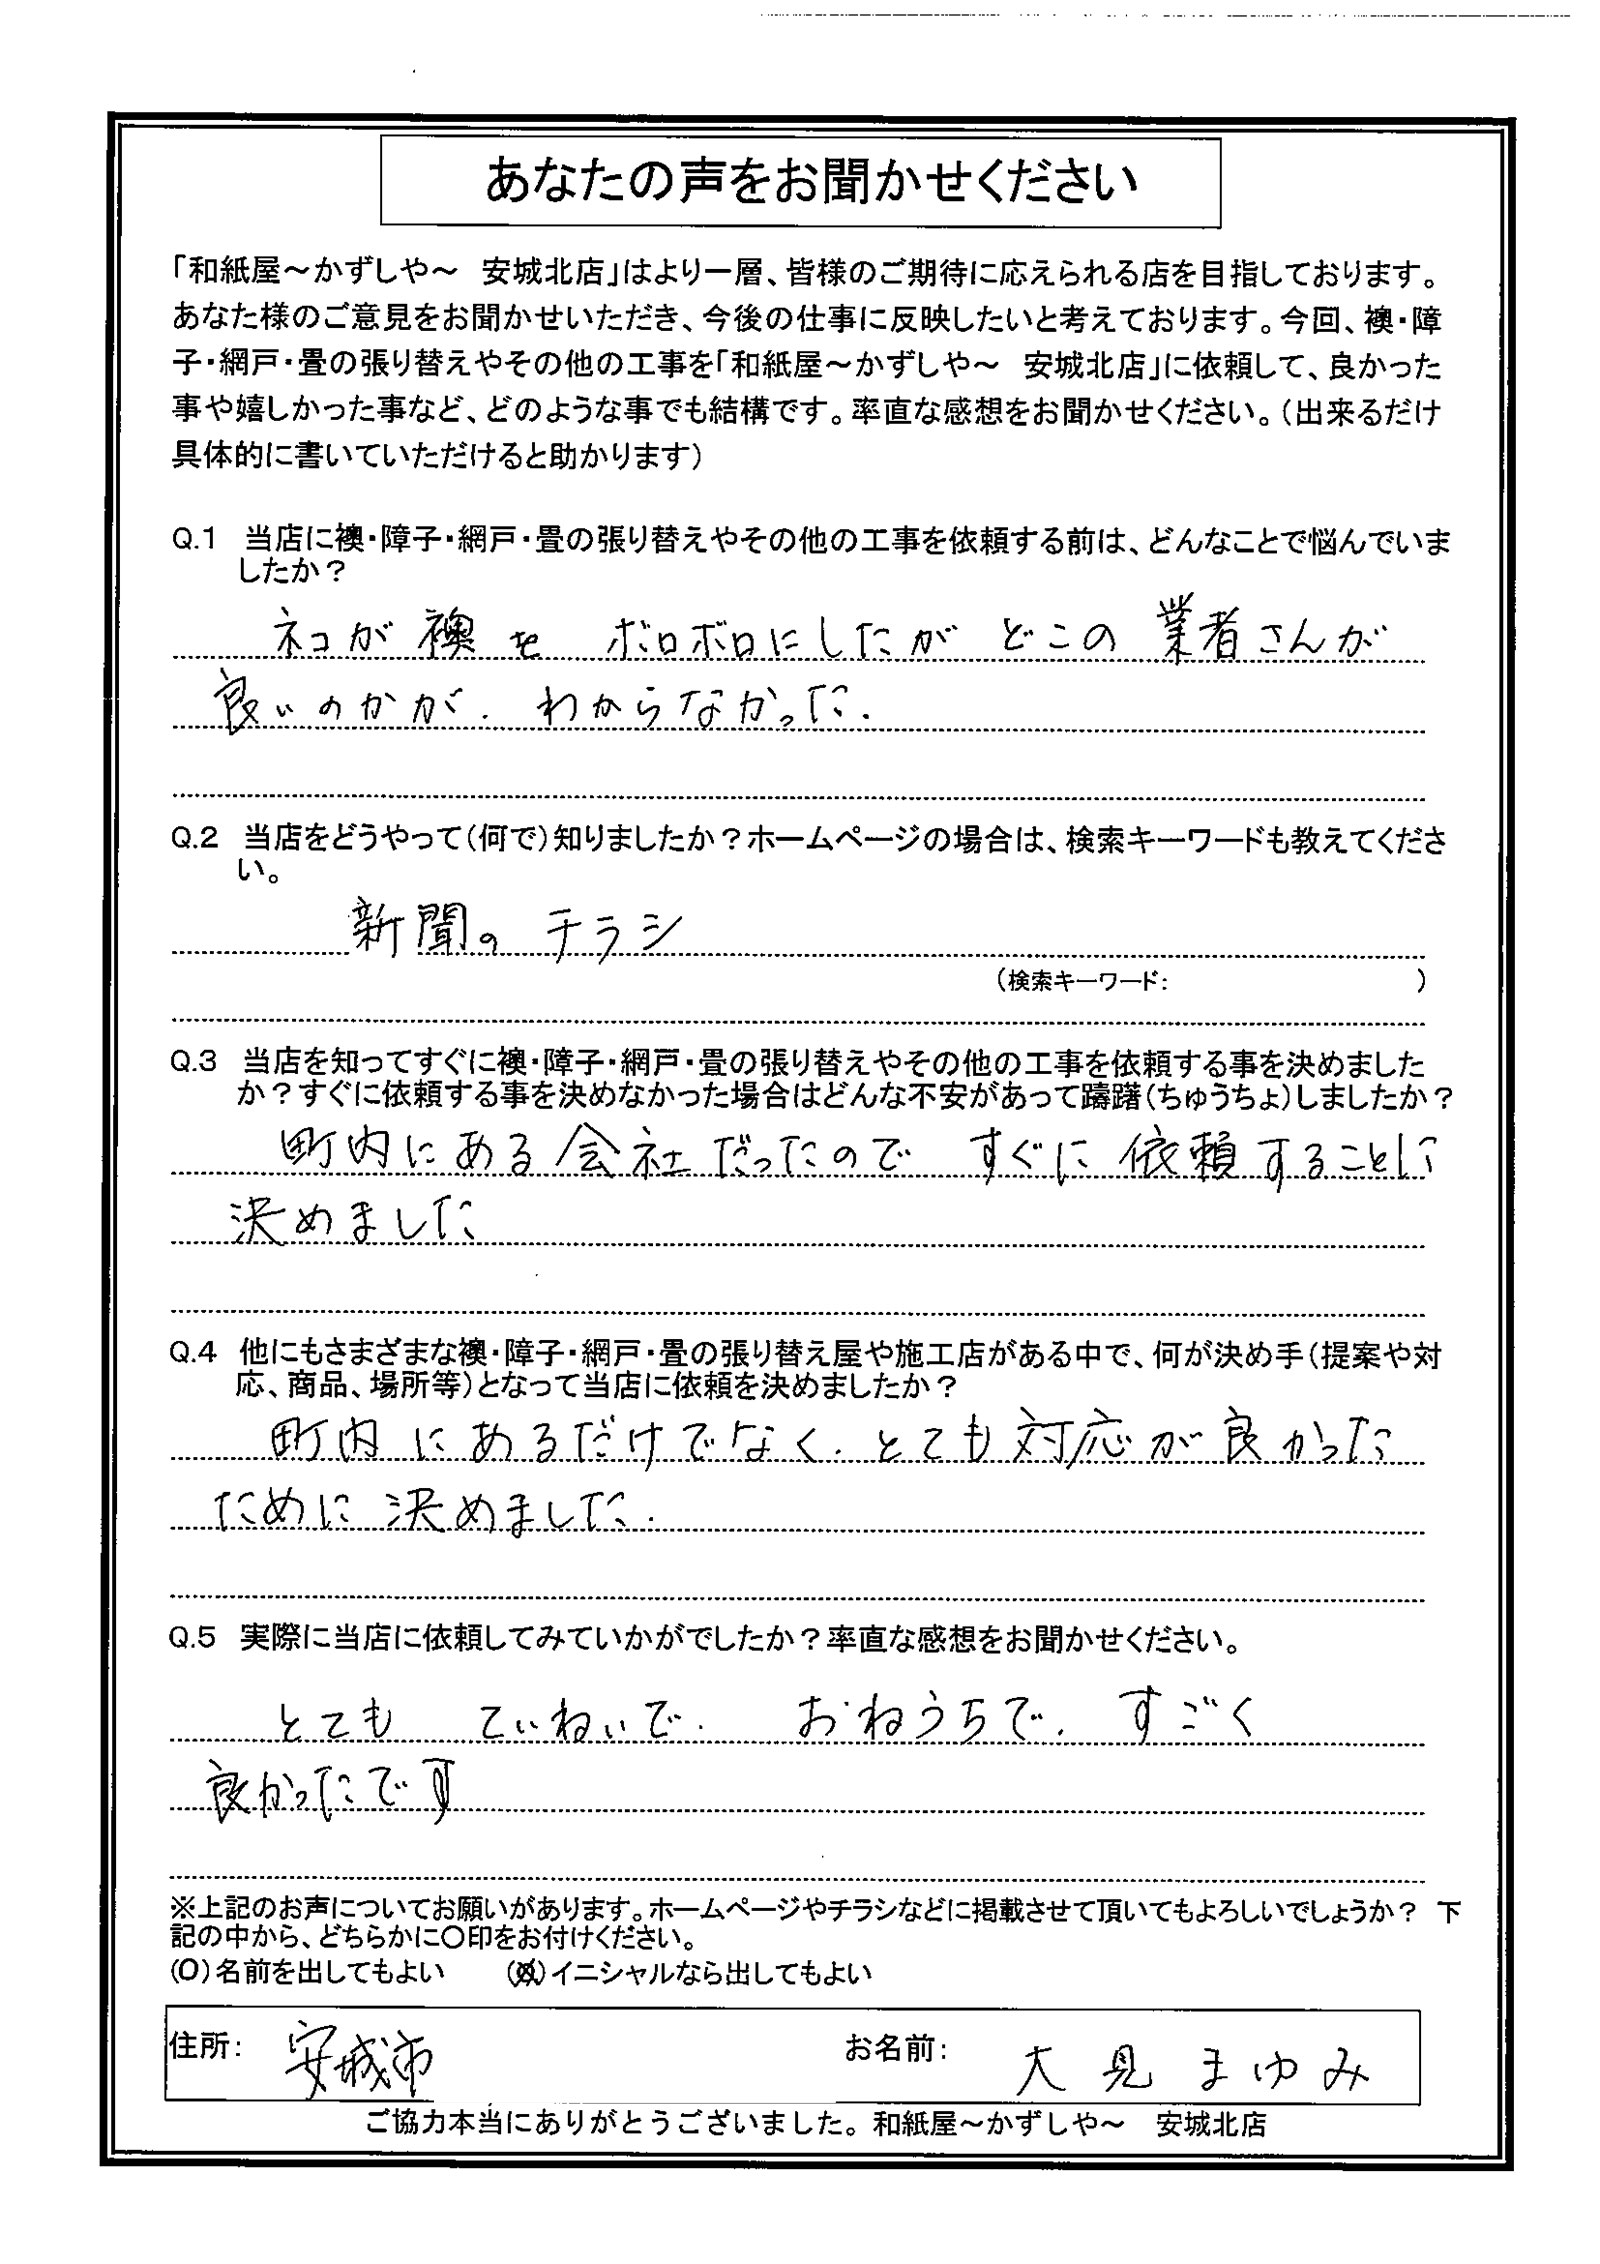 あなたの声をお聞かせください
「和紙屋～かずしや～　安城北店」はより一層、皆様のご期待に応えられる店を目指しております。
あなた様のご意見をお聞かせいただき、今後の仕事に反映したいと考えております。今回、襖・障
子・網戸・畳の張り替えやその他の工事を「和紙屋～かずしや～　安城北店」に依頼して、良かった
事や嬉しかった事など、どのような事でも結構です。率直な感想をお聞かせください。（出来るだけ
具体的に書いていただけると助かります）
Q.1　当店に襖・障子・網戸・畳の張り替えやその他の工事を依頼する前は、どんなことで悩んでいま
したか？
ネコが襖を ボロボロにしたが どこの業者さんが
良いのかが. わからなかった.
Q.2　当店をどうやって（何で）知りましたか？ホームページの場合は、検索キーワードも教えてくださ
い。
新聞の チラシ
（検索キーワード：　　　　　　　　　　）
Q.3　当店を知ってすぐに襖・障子・網戸・畳の張り替えやその他の工事を依頼する事を決めました
か？すぐに依頼する事を決めなかった場合はどんな不安があって躊躇（ちゅうちょ）しましたか？
町内にある会社だったので すぐに依頼することに
決めました
Q.4　他にもさまざまな襖・障子・網戸・畳の張り替え屋や施工店がある中で、何が決め手（提案や対
応、商品、場所等）となって当店に依頼を決めましたか？
町内にあるだけでなく. とても対応が良かった
ために 決めました.
Q.5　実際に当店に依頼してみていかがでしたか？率直な感想をお聞かせください。
とても ていねいで. おねうちで. すごく
良かったです
※上記のお声についてお願いがあります。ホームページやチラシなどに掲載させて頂いてもよろしいでしょうか？　下
記の中から、どちらかに○印をお付けください。
（O）名前を出してもよい　　（　）イニシャルなら出してもよい
住所：　安城市　　お名前：　大見 まゆみ
ご協力本当にありがとうございました。和紙屋～かずしや～　安城北店